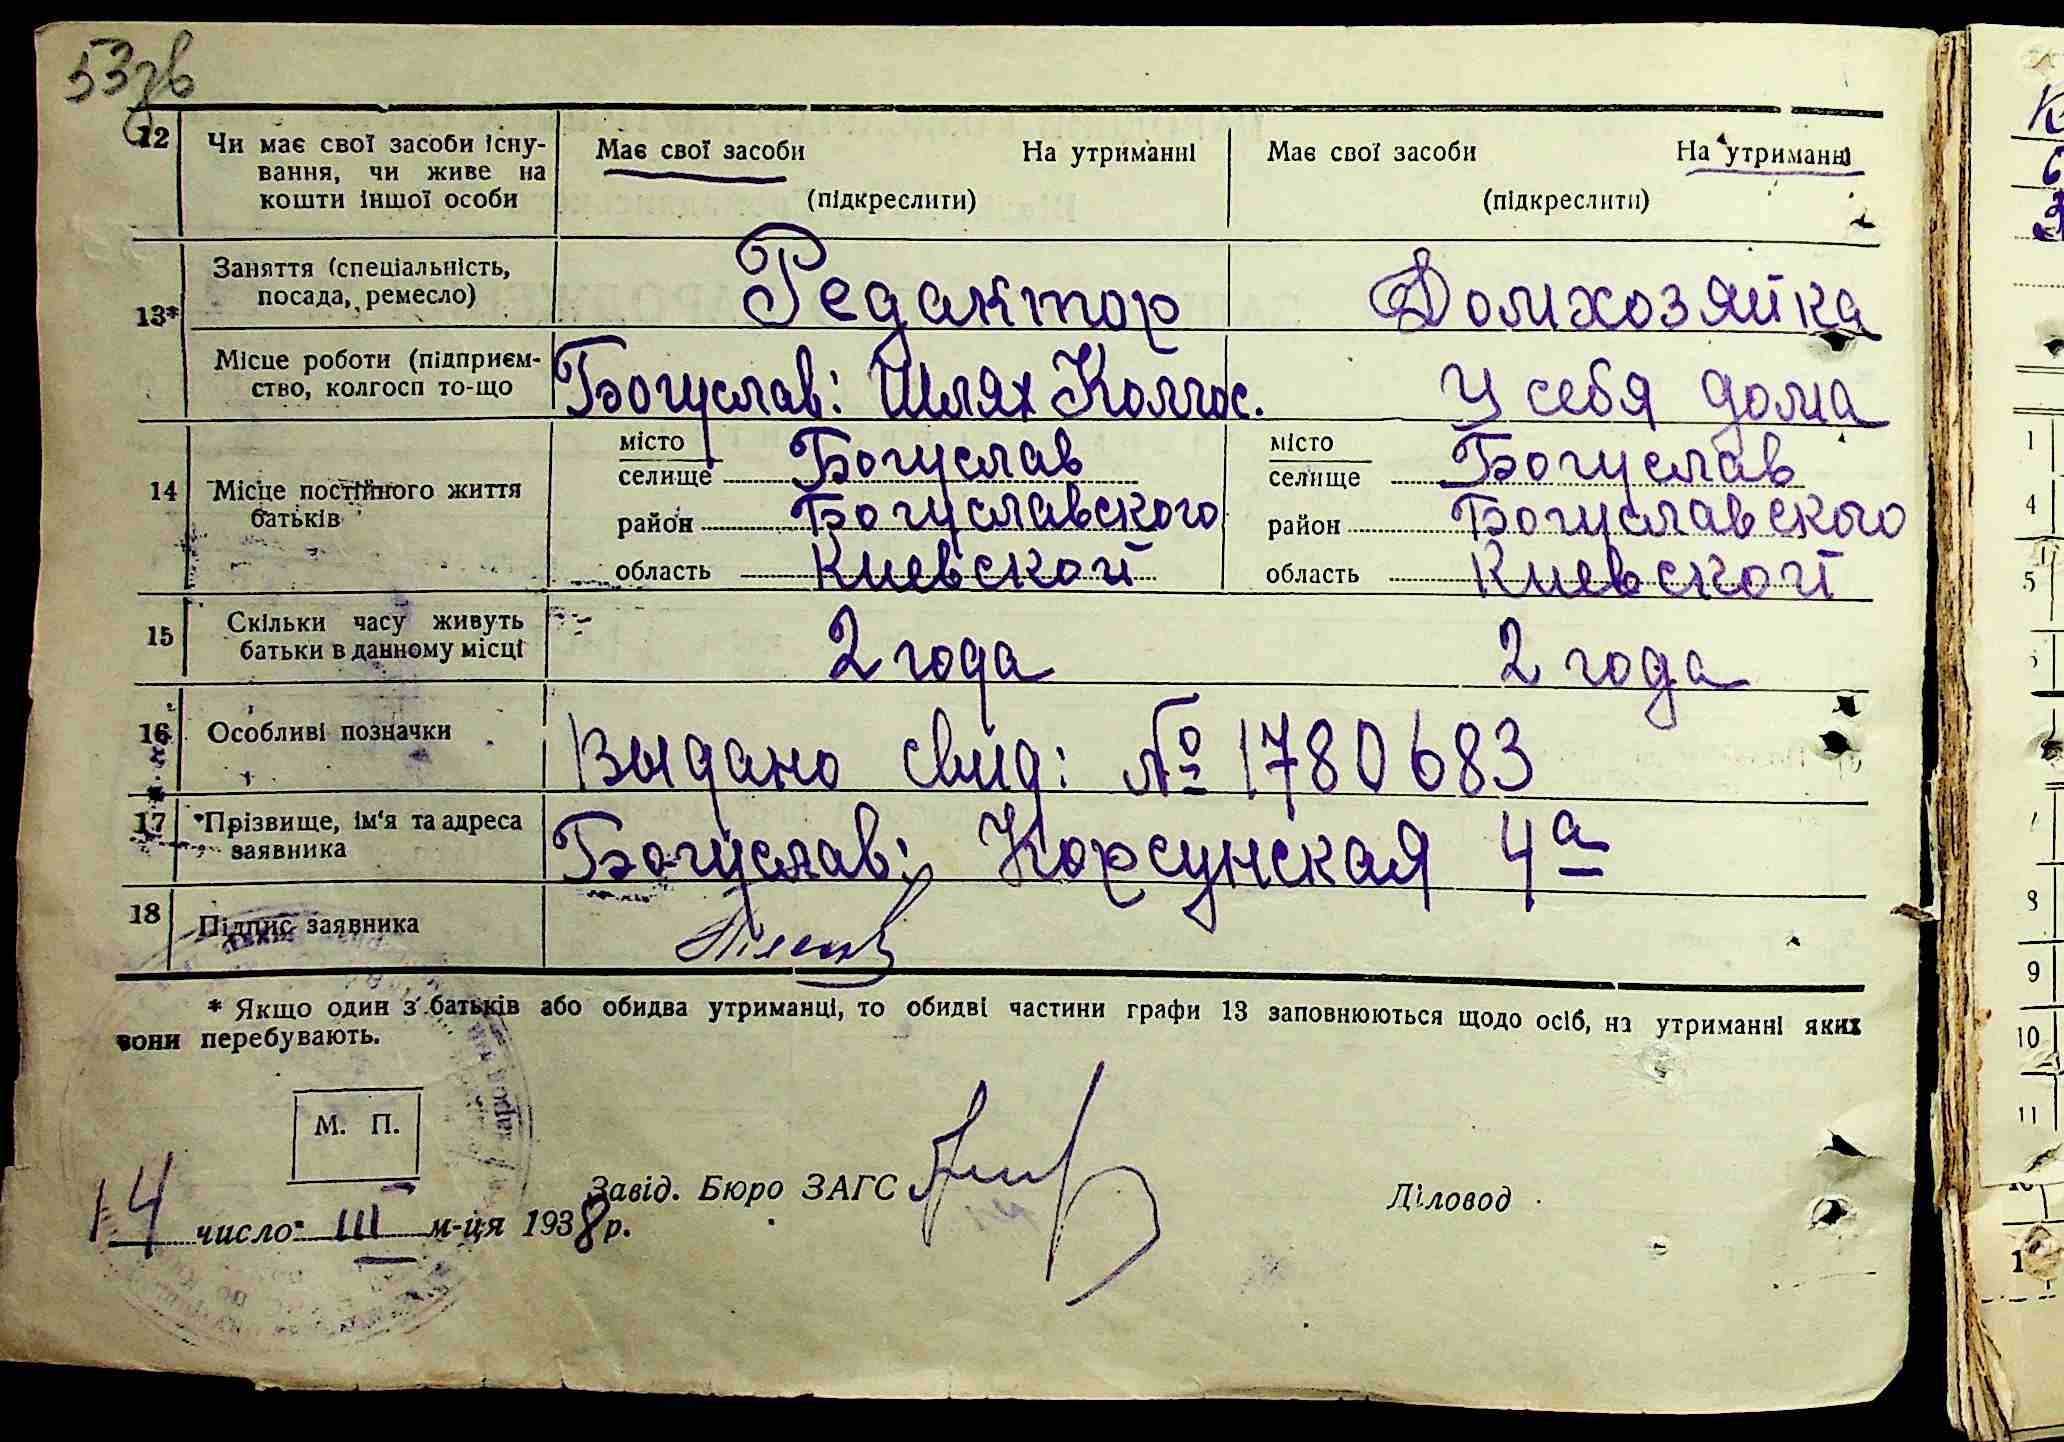 53зв
12 Чи має свої засоби існу-
вання, чи живе на
кошти іншої особи
Має свої засоби На утриманні
(підкреслити)
Має свої засоби На утриманні
(підкреслити)
13*
Заняття (спеціальність,
посада, ремесло)
Редактор
Домхозяйка
Місце роботи (підприєм-
ство, колгосп то-що
Богуслав: Шлях Колгос.
у себя дома
14 Місце постійного життя
батьків
місто
селище Богуслав
район Богуславского
область Киевской
місто
селище Богуслав
район Богуславского
область Киевской
15 Скільки часу живуть
батьки в данному місці
2 года
2 года
16 Особливі позначки
Выдано свид: № 1780683
17 Прізвище, ім'я та адреса
заявника
Богуслав: Корсунская 4а
18 Підпис заявника
* Якщо один з батьків або обидва утриманці, то обидві частини графи 13 заповнюються щодо осіб, на утриманні яких
вони перебувають.
М. П.
Завід. Бюро ЗАГС
Діловод
14 число III м-ця 1938 р.
1
4
5
8
9
10
11